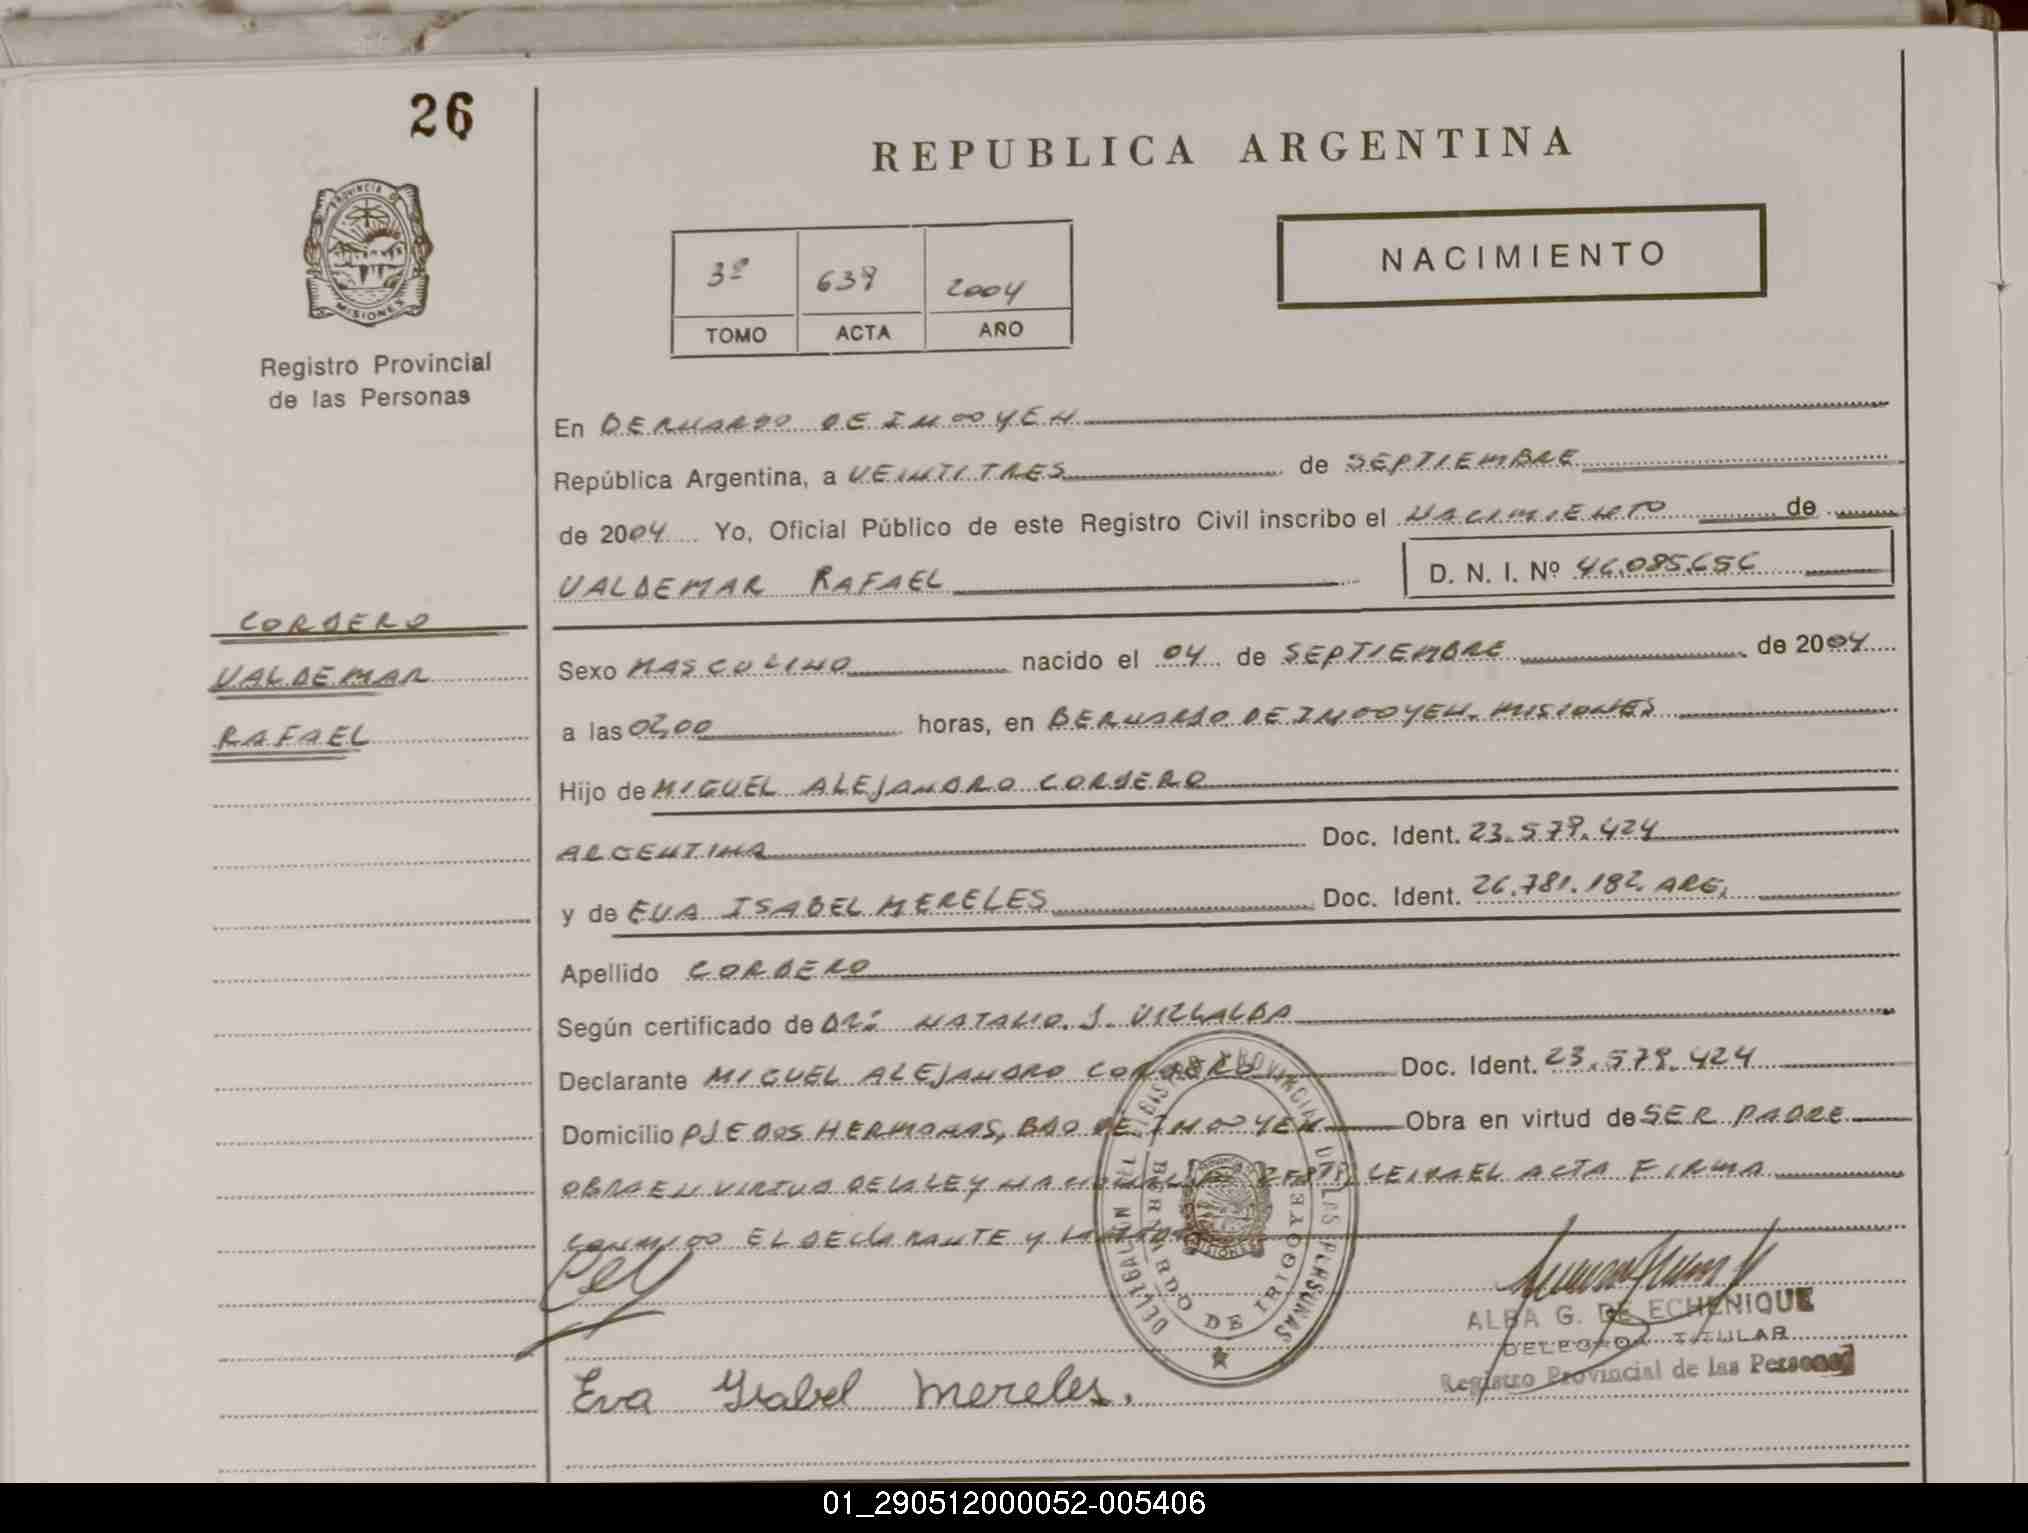 26
REPUBLICA ARGENTINA
PROVINCIA DE
MISIONES
3º 639 2004
TOMO ACTA AÑO
NACIMIENTO
Registro Provincial
de las Personas
En BERNARDO DE IRIGOYEN
República Argentina, a VEINTITRES de SEPTIEMBRE
de 2004 Yo, Oficial Público de este Registro Civil inscribo el NACIMIENTO de
VALDEMAR RAFAEL D. N. I. Nº 46.085.656
CORDERO
VALDEMAR
RAFAEL
Sexo MASCULINO nacido el 04 de SEPTIEMBRE de 2004
a las 02,00 horas, en BERNARDO DE IRIGOYEN. MISIONES
Hijo de MIGUEL ALEJANDRO CORDERO
ARGENTINA Doc. Ident. 23.579.424
y de EVA ISABEL MERELES Doc. Ident. 26.781.182 ARG.
Apellido CORDERO
Según certificado de DR: NATALIO. J. VILLALBA
Declarante MIGUEL ALEJANDRO CORDERO Doc. Ident. 23.579.424
Domicilio PJE DOS HERMANAS, BDO DE IRIGOYEN Obra en virtud de SER PADRE
OBRA EN VIRTUD DE LA LEY NACIONAL LEIDA EL ACTA FIRMA
CONMIGO EL DECLARANTE Y LA MADRE
DELEGACION REGISTRO PROVINCIAL DE LAS PERSONAS
BERNARDO DE IRIGOYEN
MISIONES
ALBA G. DE ECHENIQUE
DELEGADA TITULAR
Registro Provincial de las Personas
Eva Ysabel Mereles.
01_290512000052-005406